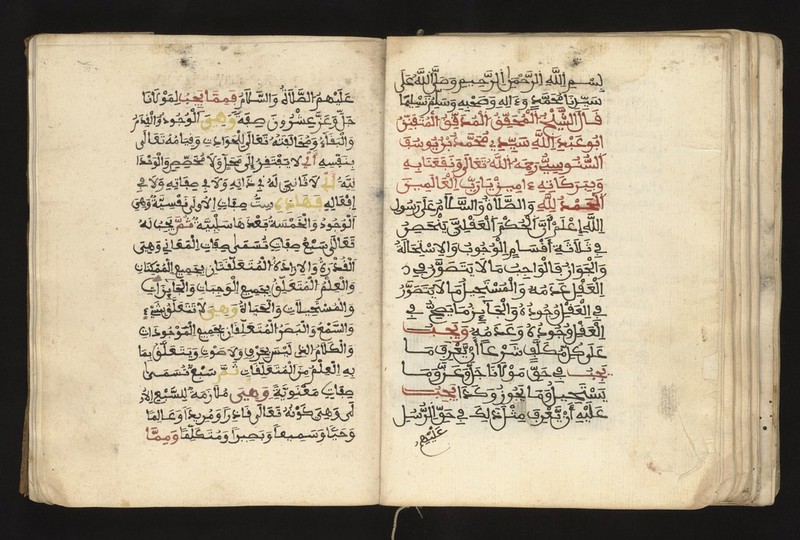 بسم الله الرحمن الرحيم وصلى الله على
سيدنا محمد وءاله وصحبه وسلم تسليما
قال الشيخ المحقق المدقق المتقن
ابو عبد الله سيدي محمد بن يوسف
السنوسي رحمه الله تعالى ونفعنا به
وببركاته ءامين يارب العالمين
الحمد لله والصلاة والسلام على رسول
الله اعلم أن الحكم العقلي ينحصر
في ثلاثة أقسام الوجوب والاستحالة
والجواز فالواجب ما لا يتصور في
العقل عدمه والمستحيل ما لا يتصور
في العقل وجوده والجايز ما يصح في
العقل وجوده وعدمه ويجب
على كل مكلف شرعا أن يعرف ما
يجب في حق مولانا جل وعز وما
يستحيل وما يجوز وكذا يجب
عليه أن يعرف مثل ذلك في حق الرسل
عليهم
عليهم الصلاة والسلام فمما يجب لمولانا
جل وعز عشرون صفة وهي الوجود والقدم
والبقاء ومخالفته تعالى للحوادث وقيامه تعالى
بنفسه أي لا يفتقر إلى محل ولا مخصص والوحدا
نية أي لا ثاني له في ذاته ولا في صفاته ولا في
افعاله فهذه ست صفات الاولى نفسية وهي
الوجود والخمسة بعدها سلبية ثم يجب له
تعالى سبع صفات تسمى صفات المعاني وهي
القدرة والارادة المتعلقتان بجميع الممكنات
والعلم المتعلق بجميع الواجبات والجايزات
والمستحيلات والحياة وهي لا تتعلق بشيء
والسمع والبصر المتعلقان بجميع الموجودات
والكلام الذي ليس بحرف ولا صوت ويتعلق بما
به العلم من المتعلقات ثم سبع تسمى
صفات معنوية وهي ملازمة للسبع الاو
لى وهي كونه تعالى قادرا ومريدا وعالما
وحيا وسميعا وبصيرا ومتكلما ومما